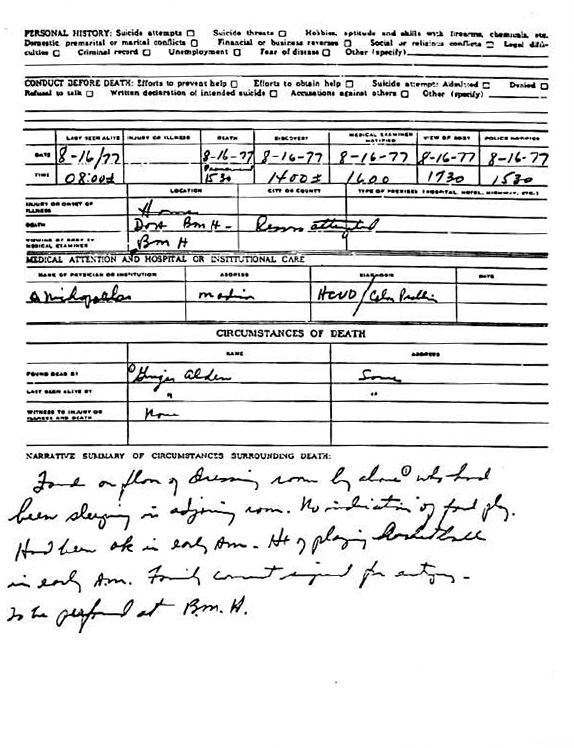 PERSONAL HISTORY: Suicide attempts □ Suicide threats □ Hobbies, aptitude and skills with firearms, chemicals, etc.
Domestic premarital or marital conflicts □ Financial or business reverses □ Social or religious conflicts □ Legal diffi-
culties □ Criminal record □ Unemployment □ Fear of disease □ Other (specify)
CONDUCT BEFORE DEATH: Efforts to prevent help □ Efforts to obtain help □ Suicide attempt: Admitted □ Denied □
Refusal to talk □ Written declaration of intended suicide □ Accusations against others □ Other (specify)
LAST SEEN ALIVE INJURY OR ILLNESS DEATH DISCOVERY MEDICAL EXAMINER NOTIFIED VIEW OF BODY POLICE NOTIFIED
DATE 8-16/77 8-16-77 8-16-77 8-16-77 8-16-77 8-16-77
TIME 08:00± Pronounced 1530 1400± 1600 1730 1530
LOCATION CITY OR COUNTY TYPE OF PREMISES (HOSPITAL, HOTEL, HIGHWAY, ETC.)
INJURY OR ONSET OF ILLNESS Home
DEATH DOA BMH - Resus attempted
VIEWING OF BODY BY MEDICAL EXAMINER BMH
MEDICAL ATTENTION AND HOSPITAL OR INSTITUTIONAL CARE
NAME OF PHYSICIAN OR INSTITUTION ADDRESS DIAGNOSIS DATE
HCVD / Colon Problem
CIRCUMSTANCES OF DEATH
NAME ADDRESS
FOUND DEAD BY ① Ginger Alden Same
LAST SEEN ALIVE BY " "
WITNESS TO INJURY OR ILLNESS AND DEATH None
NARRATIVE SUMMARY OF CIRCUMSTANCES SURROUNDING DEATH:
Found on floor of dressing room by above ① who had
been sleeping in adjoining room. No indication of foul play.
Had been ok in early Am. Hx of playing basketball
in early Am. Family consent signed for autopsy -
To be performed at B.M.H.